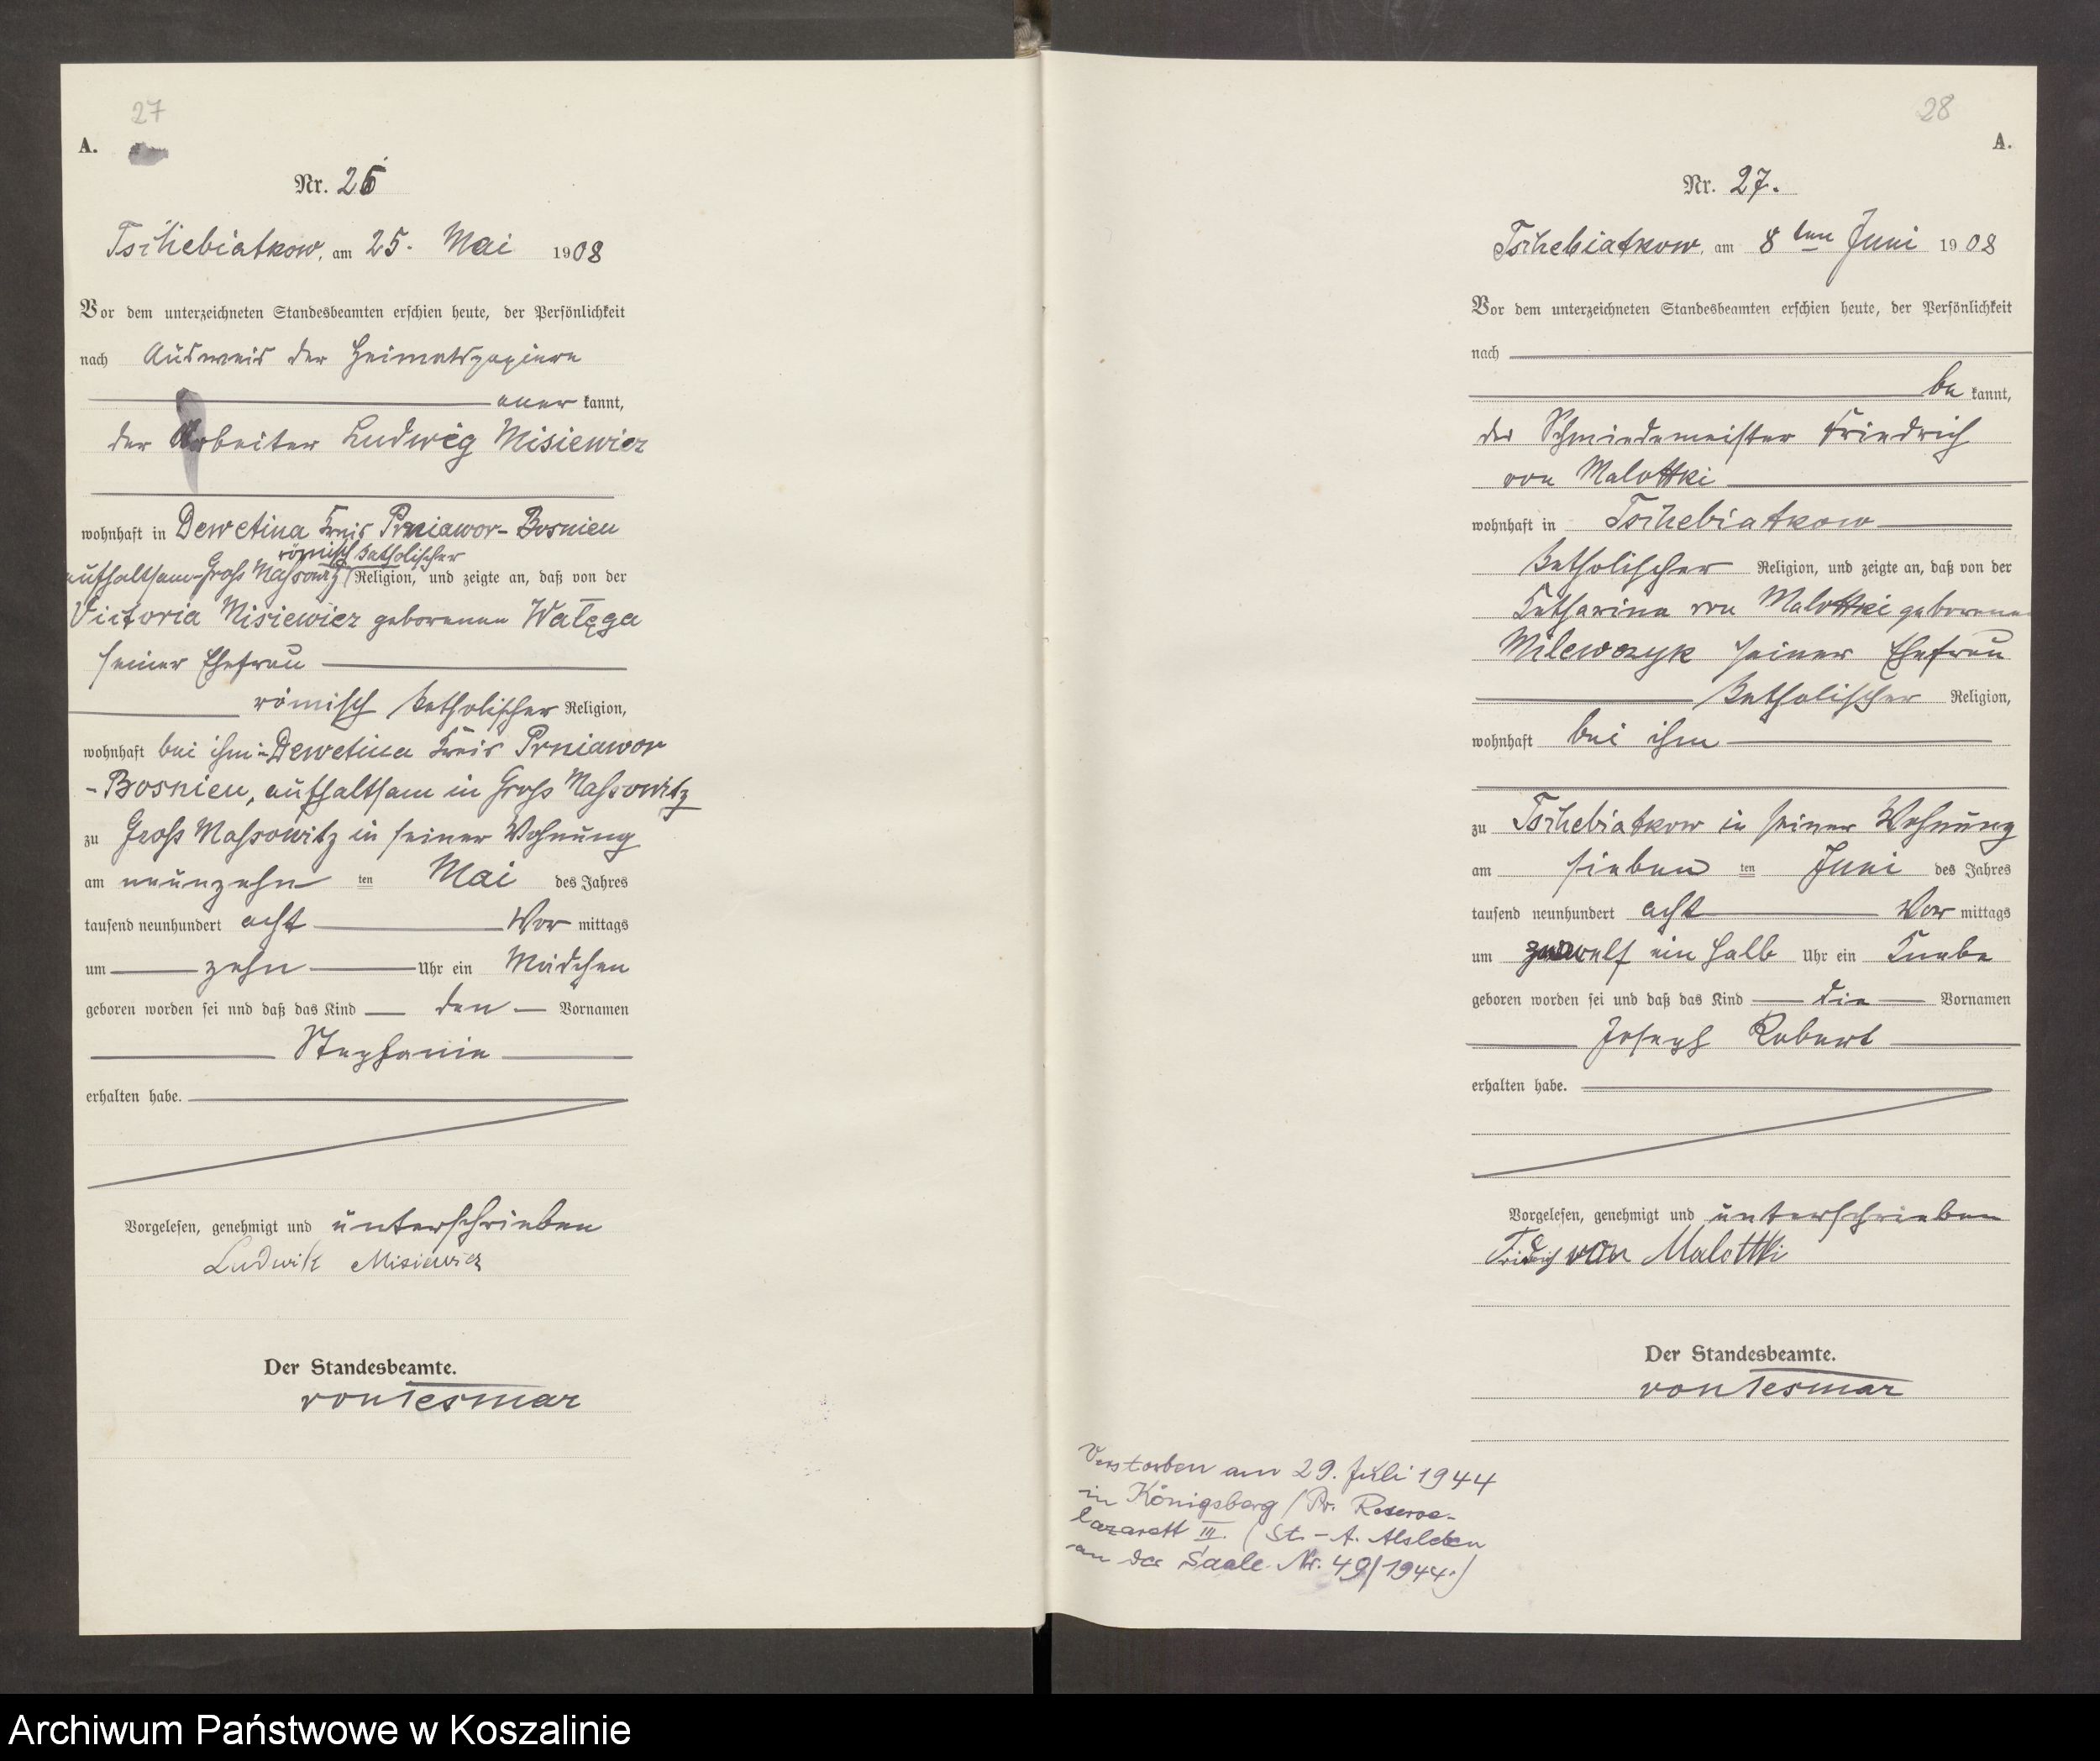 27
A.
Nr. 26
Tschebiatkow, am 25. Mai 1908
Vor dem unterzeichneten Standesbeamten erschien heute, der Persönlichkeit
nach Ausweis der Heimatspapiere
aner kannt,
der Arbeiter Ludwig Misiewicz
wohnhaft in Dewetina Kreis Prniawor-Bosnien
römisch katholischer
aufhaltsam Gross Massowitz Religion, und zeigte an, daß von der
Victoria Misiewicz geborenen Wałęga
seiner Ehefrau
römisch katholischer Religion,
wohnhaft bei ihm in Dewetina Kreis Prniawor
-Bosnien, aufhaltsam in Gross Massowitz
zu Gross Massowitz in seiner Wohnung
am neunzehn ten Mai des Jahres
tausend neunhundert acht Vor mittags
um zehn Uhr ein Mädchen
geboren worden sei nnd daß das Kind den Vornamen
Stephanie
erhalten habe.
Vorgelesen, genehmigt und unterschrieben
Ludwik Misiewicz
Der Standesbeamte.
von Tesmar
28
A.
Nr. 27.
Tschebiatkow, am 8ten Juni 1908
Vor dem unterzeichneten Standesbeamten erschien heute, der Persönlichkeit
nach
be kannt,
der Schmiedemeister Friedrich
von Malottki
wohnhaft in Tschebiatkow
katholischer Religion, und zeigte an, daß von der
Katharina von Malottki geborene
Milewczyk seiner Ehefrau
katholischer Religion,
wohnhaft bei ihm
zu Tschebiatkow in seiner Wohnung
am sieben ten Juni des Jahres
tausend neunhundert acht Vor mittags
um zwoelf ein halb Uhr ein Knabe
geboren worden sei und daß das Kind die Vornamen
Joseph Robert
erhalten habe.
Vorgelesen, genehmigt und unterschrieben
Fridrich von Malottki
Der Standesbeamte.
von Tesmar
Verstorben am 29. Juli 1944
in Königsberg / Pr. Reserve-
lazarett III. (St.-A. Alsleben
an der Saale Nr. 49/1944.)
Archiwum Państwowe w Koszalinie